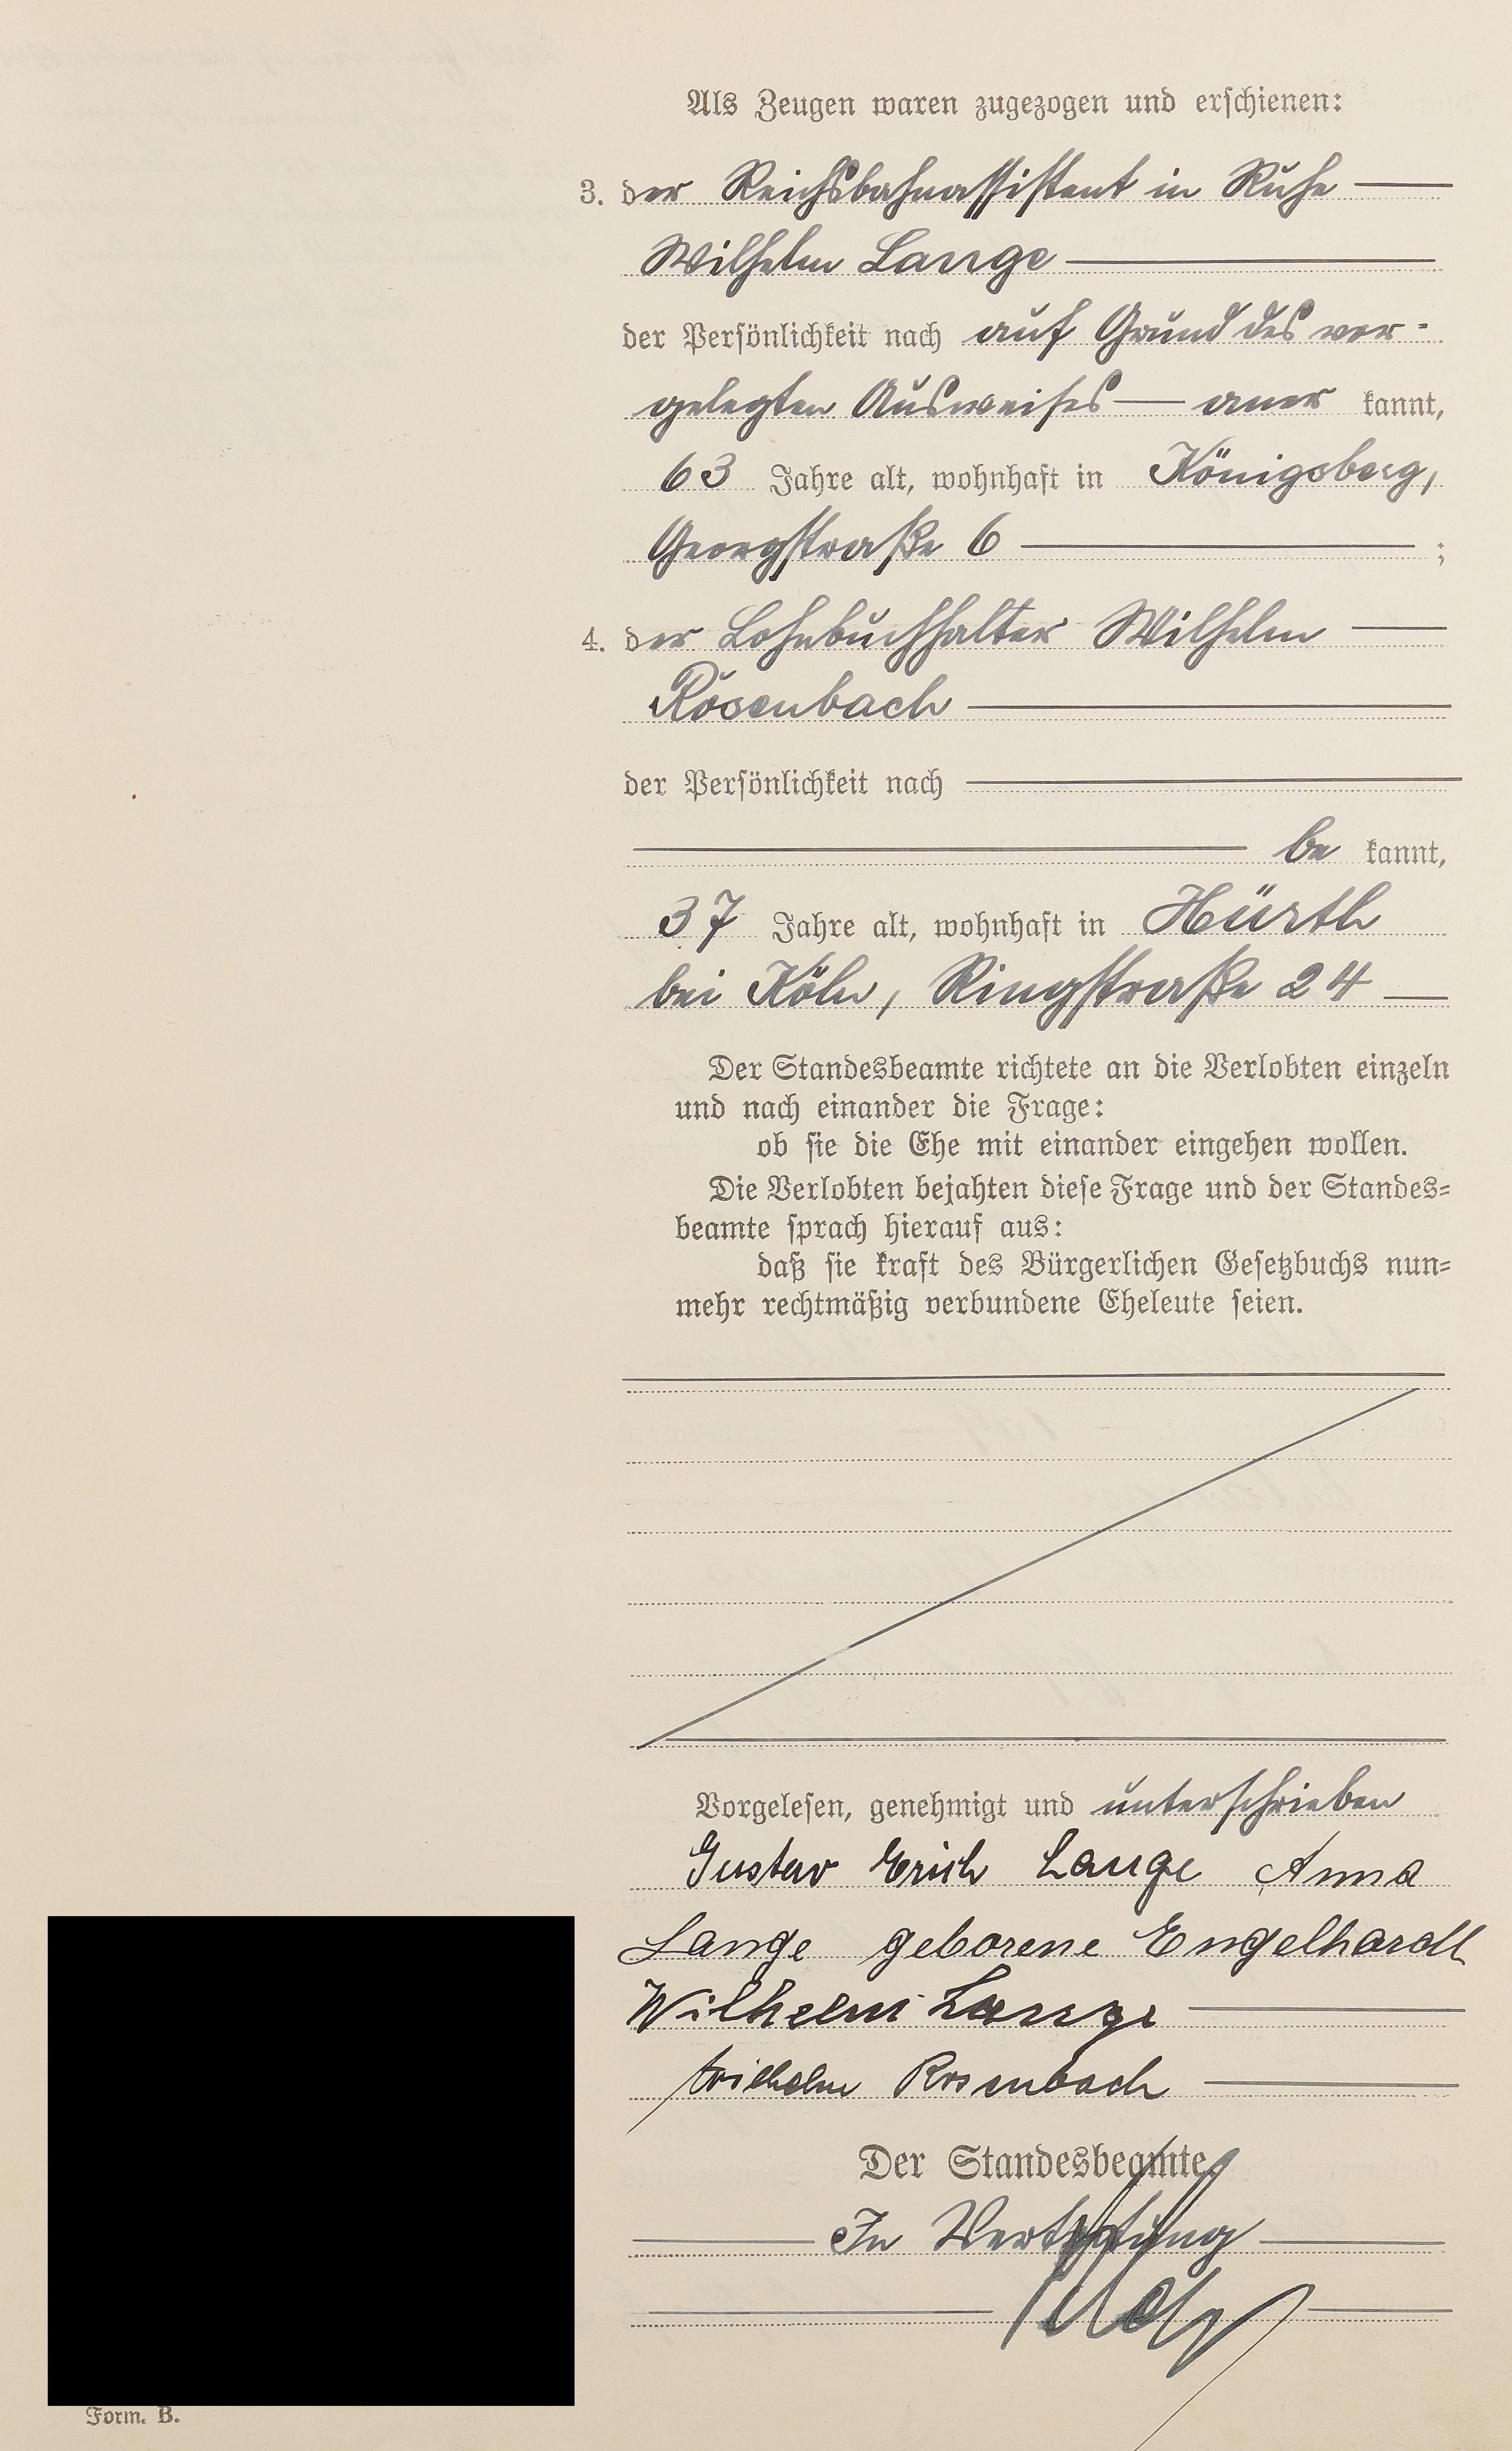 Als Zeugen waren zugezogen und erschienen:
3. der Reichsbahnassistent in Ruhe
Wilhelm Lange
der Persönlichkeit nach auf Grund des vor-
gelegten Ausweises aner kannt,
63 Jahre alt, wohnhaft in Königsberg,
Georgstraße 6 ;
4. der Lohnbuchhalter Wilhelm
Rosenbach
der Persönlichkeit nach
be kannt,
37 Jahre alt, wohnhaft in Hürth
bei Köln, Ringstraße 24
Der Standesbeamte richtete an die Verlobten einzeln
und nach einander die Frage:
ob sie die Ehe mit einander eingehen wollen.
Die Verlobten bejahten diese Frage und der Standes-
beamte sprach hierauf aus:
daß sie kraft des Bürgerlichen Gesetzbuchs nun-
mehr rechtmäßig verbundene Eheleute seien.
Vorgelesen, genehmigt und unterschrieben
Gustav Erich Lange Anna
Lange geborene Engelhardt
Wilhelm Lange
Wilhelm Rosenbach
Der Standesbeamte
In Vertretung
Form. B.